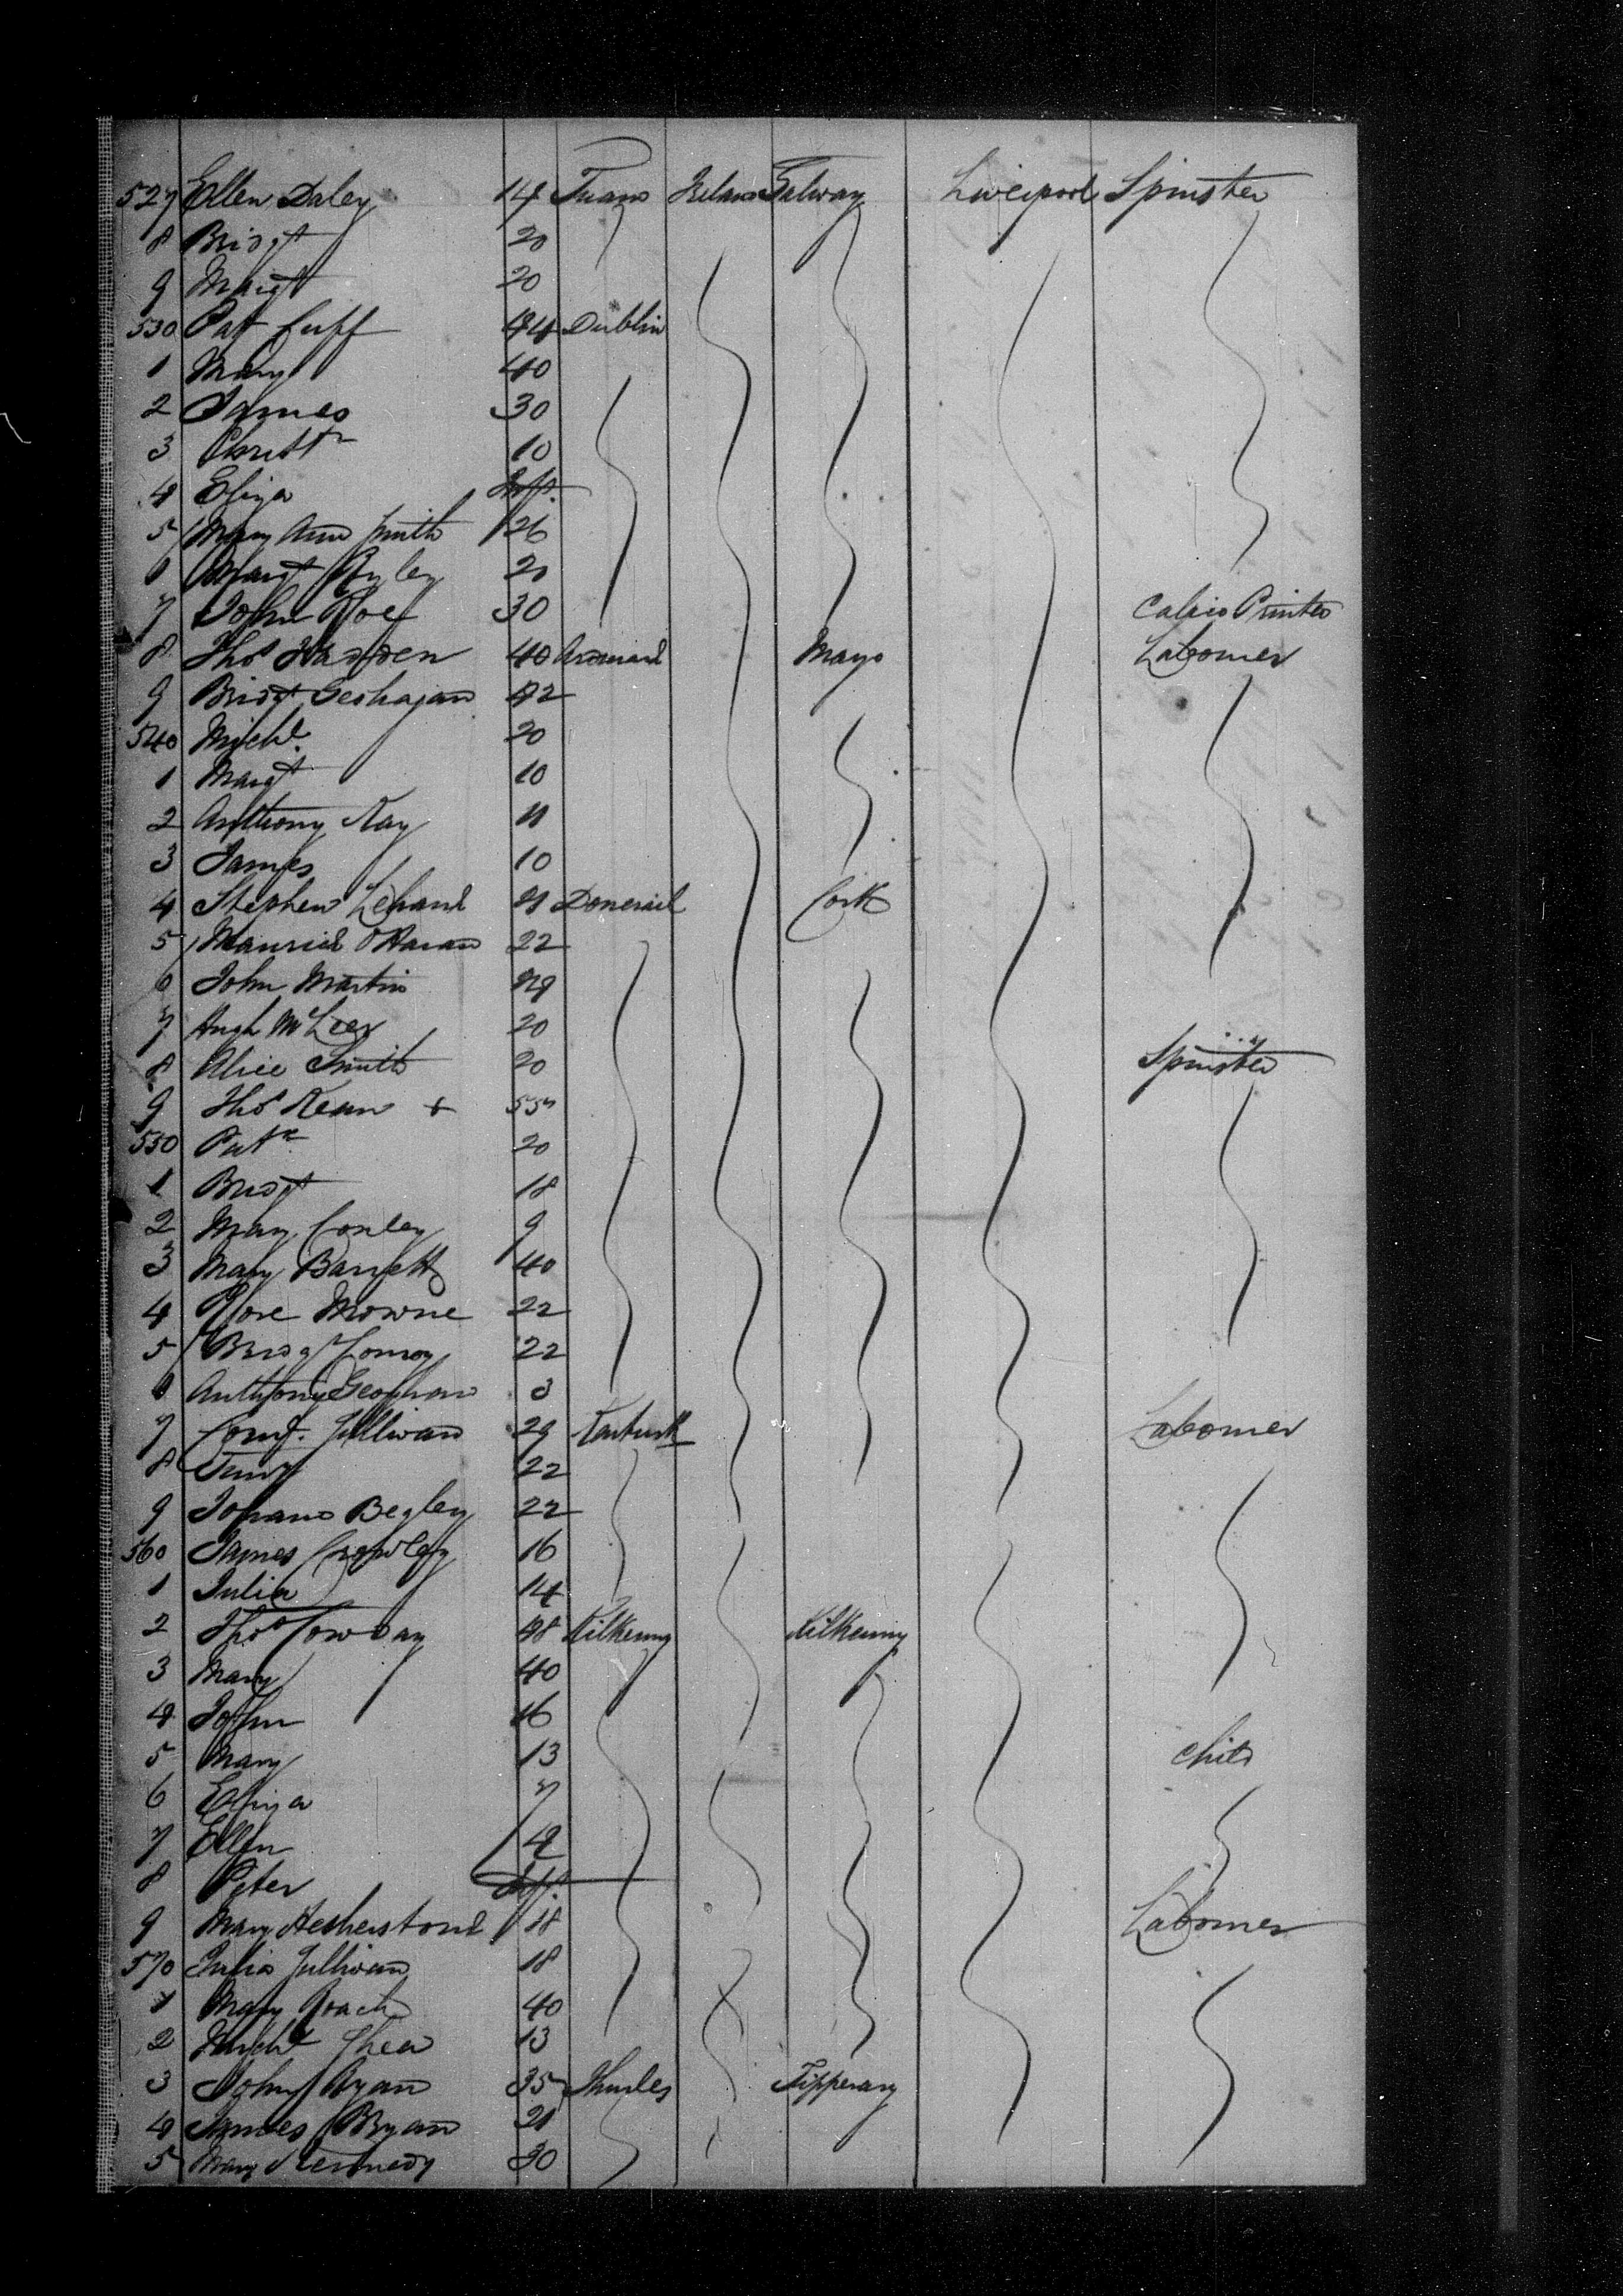 527 Ellen Daley 14 Tuam Ireland Galway Liverpool Spinster
8 Bridgt 20
9 Margt 20
530 Pat Cuff 44 Dublin
1 Mary 40
2 James 30
3 Christr 10
4 Eliza Inft.
5 Mary Ann Smith 26
6 Margt Ryley 20
7 John Roe 30 Calico Printer
8 Thos Hadden 40 Mayo Labourer
9 Bridgt Geohagan 42
540 Michl. 20
1 Margt 10
2 Anthony Kay 11
3 James 10
4 Stephen Lehane 21 Donerail Cork
5 Maurice O'Haran 22
6 John Martin
7 Hugh McLeer 20
8 Alice Smith 20 Spinster
9 Thos Kean + 55
550 Patk 20
1 Bridgt 18
2 Mary Conley 9
3 Mary Barrett 40
4 Rose Mowne 22
5 Bridgt Conroy 22
6 Anthony Geoghan 3
7 Sullivan 29 Kanturk Labourer
8 22
9 Johana Begley 22
560 James Crowley 16
1 Julia 14
2 Thos 48 Kilkenny Kilkenny
3 Mary 40
4 John 16
5 Mary 13 Child
6 Eliza 7
7 Ellen 4
8 Peter Inft.
9 Mary Hetherstone 18 Labourer
570 Julia Sullivan 18
1 Mary Roach 40
2 Michl Shea 13
3 John Ryan 35 Thurles Tipperary
4 James Bryan 21
5 Mary Kennedy 30